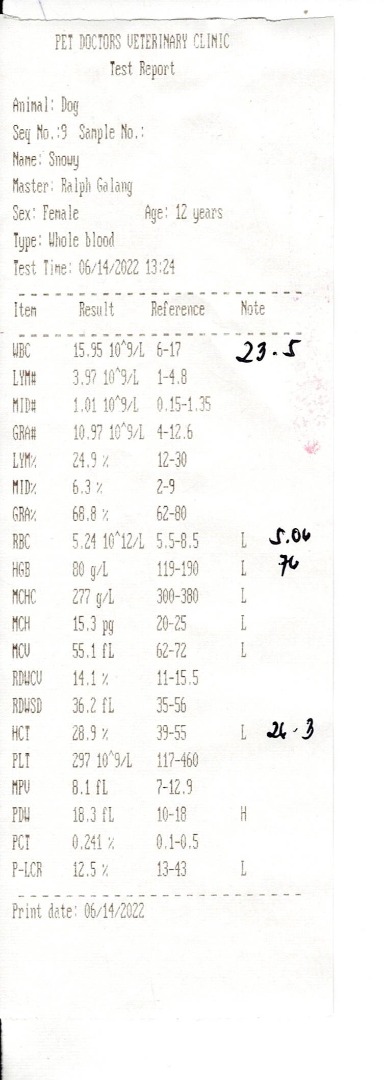 PET DOCTORS VETERINARY CLINIC
Test Report
Animal: Dog
Seq No.:9 Sample No.:
Name: Snowy
Master: Ralph Galang
Sex: Female Age: 12 years
Type: Whole blood
Test Time: 06/14/2022 13:24
Item Result Reference Note
WBC 15.95 10^9/L 6-17 23.5
LYM# 3.97 10^9/L 1-4.8
MID# 1.01 10^9/L 0.15-1.35
GRA# 10.97 10^9/L 4-12.6
LYM% 24.9 % 12-30
MID% 6.3 % 2-9
GRA% 68.8 % 62-80
RBC 5.24 10^12/L 5.5-8.5 L 5.06
HGB 80 g/L 119-190 L 76
MCHC 277 g/L 300-380 L
MCH 15.3 pg 20-25 L
MCV 55.1 fL 62-72 L
RDWCV 14.1 % 11-15.5
RDWSD 36.2 fL 35-56
HCT 28.9 % 39-55 L 26.3
PLT 297 10^9/L 117-460
MPV 8.1 fL 7-12.9
PDW 18.3 fL 10-18 H
PCT 0.241 % 0.1-0.5
P-LCR 12.5 % 13-43 L
Print date: 06/14/2022